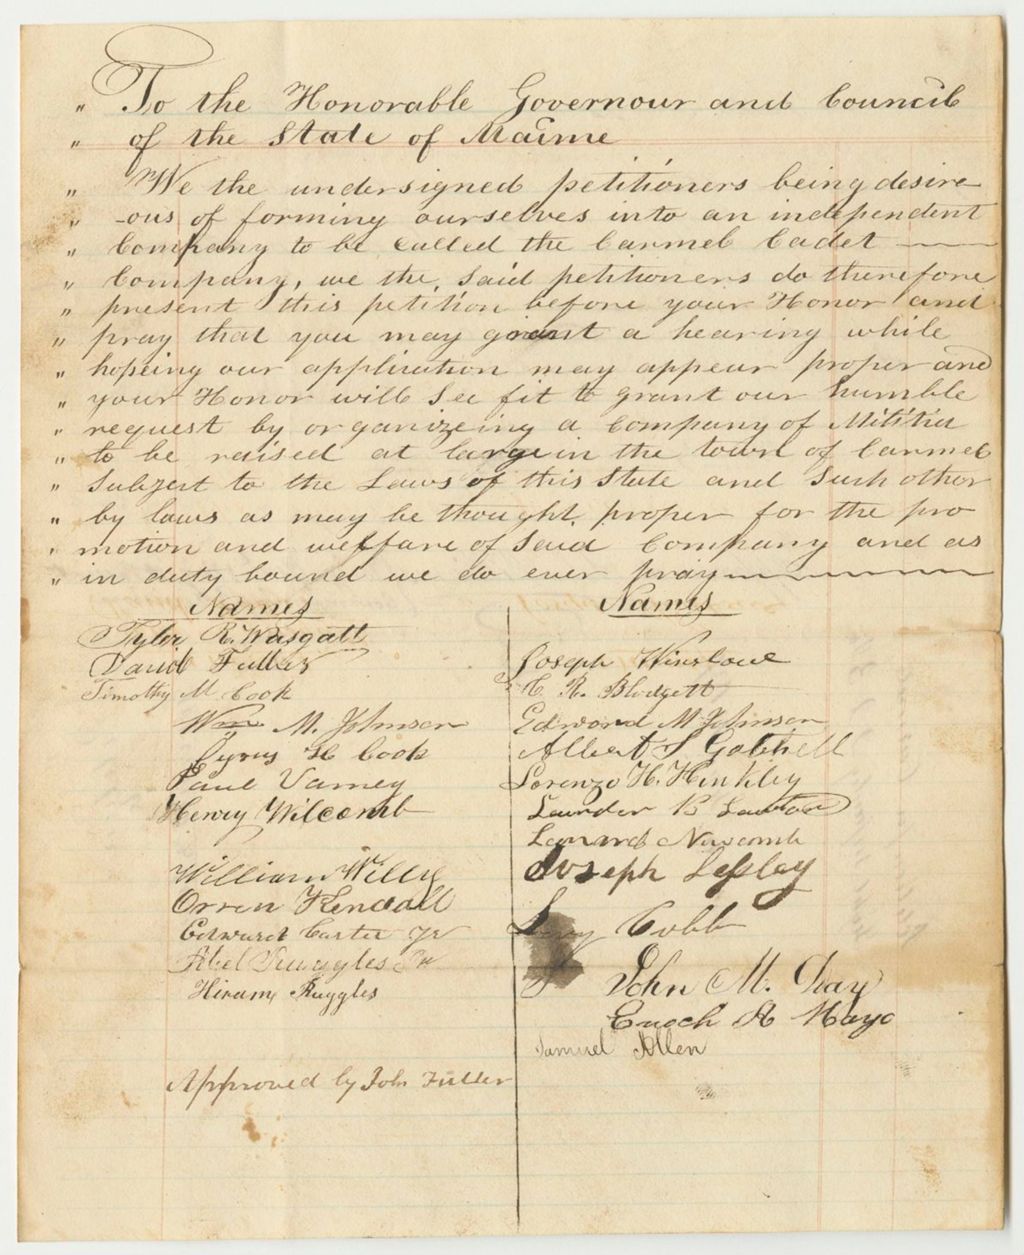 " To the Honorable Governour and Council
" of the State of Maine
" We the undersigned petitioners being desire
" -ous of forming ourselves into an independent
" Company to be called the Carmel Cadet
" Company, we the, said petitioners do therefore
" present this petition before your Honor and
" pray that you may grant a hearing while
" hopeing our application may appear proper and
" your Honor will see fit to grant our humble
" request by organizeing a Company of Militia
" to be raised at large in the town of Carmel
" Subject to the Laws of this State and Such other
" by laws as may be thought proper for the pro
" motion and welfare of Said Company and as
" in duty bound we do ever pray
Names
Tyler R. Wasgatt
David Fuller
Timothy M Cook
Wm M. Johnson
Cyrus H Cook
Paul Varney
Henry Wilcomb
William Willy
Orren Kendall
Edward Carter Jr
Abel Ruggles Jr
Hiram Ruggles
Approved by John Fuller
Names
Joseph Winslow
C. R. Blodgett
Edward M Johnson
Albert S Gatchell
Lorenzo H. Hinkley
Leander B Lawton
Leonard Newcomb
Joseph Lessley
Cobb
John M. Day
Enoch A Mayo
Samuel Allen